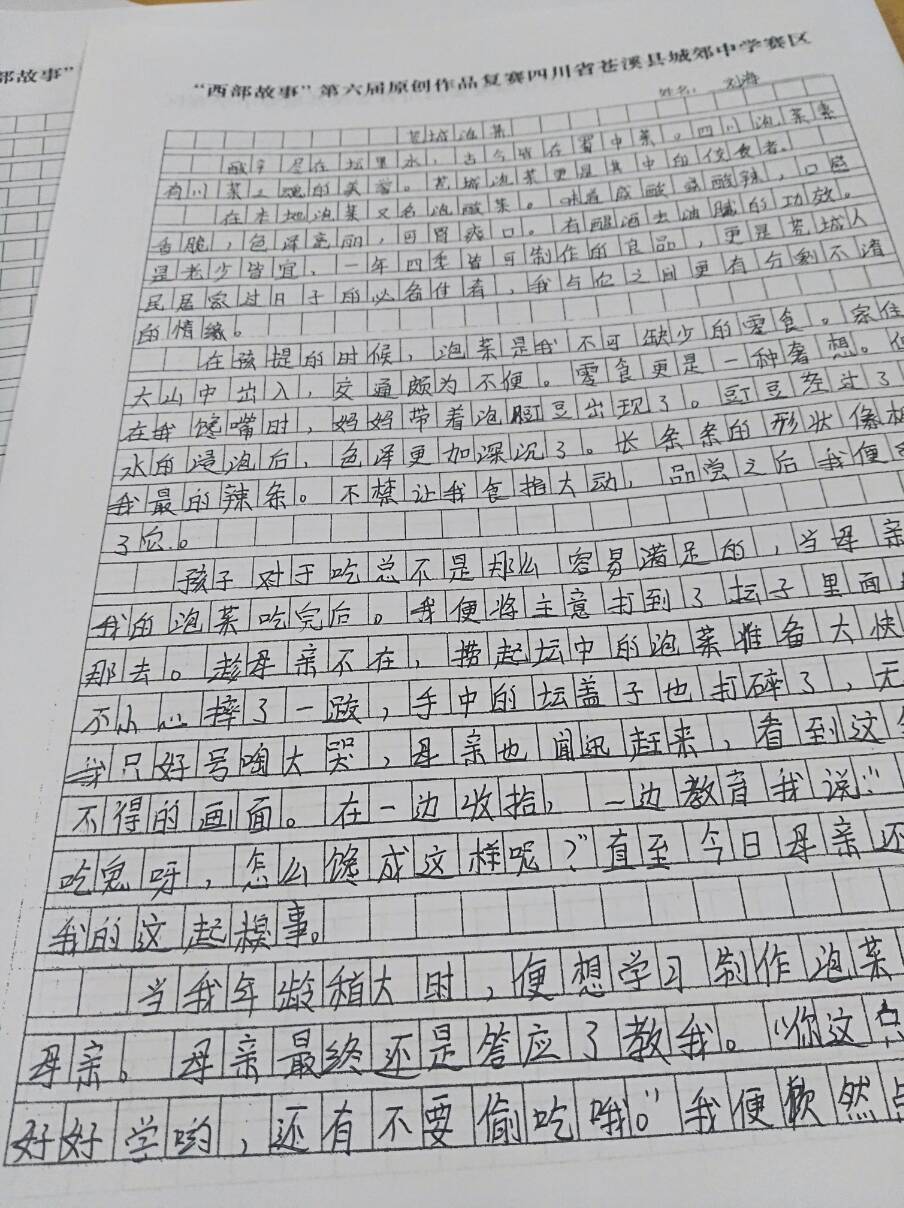 部故事"
"西部故事"第六届原创作品复赛四川省苍溪县城郊中学赛区
姓名： 刘海
苍城泡菜
酸辛尽在坛里水，古今皆在蜀中菜。四川泡菜素
有川菜之魂的美誉。苍城泡菜更是其中的佼佼者。
在本地泡菜又名泡酸菜。味道咸酸 酸辣，口感
香脆，色泽亮丽，回胃爽口。有醒酒去油腻的功效。
是老少皆宜、一年四季皆可制作的良品，更是苍城人
民居家过日子的必备佳肴，我与它之间更有分割不清
的情缘。
在孩提的时候，泡菜是我不可缺少的零食。家住
大山中出入，交通颇为不便。零食更是一种奢想。但
在我馋嘴时，妈妈带着泡豇豆出现了。豇豆经过了
水的浸泡后，色泽更加深沉了。长条条的形状像极
我最的辣条。不禁让我食指大动，品尝之后我便
了它。
孩子对于吃总不是那么容易满足的，当母亲
我的泡菜吃完后。我便将主意打到了坛子里面
那去。趁母亲不在，捞起坛中的泡菜准备大快
不小心摔了一跤，手中的坛盖子也打碎了，无
我只好号啕大哭，母亲也闻讯赶来，看到这
不得的画面。在一边收拾，一边教育我说："
吃鬼呀，怎么馋成这样呢？"直至今日母亲还
我的这起糗事。
当我年龄稍大时，便想学习制作泡菜
母亲。母亲最终还是答应了教我。"你这
好好学哟，还有不要偷吃哦。"我便欣然